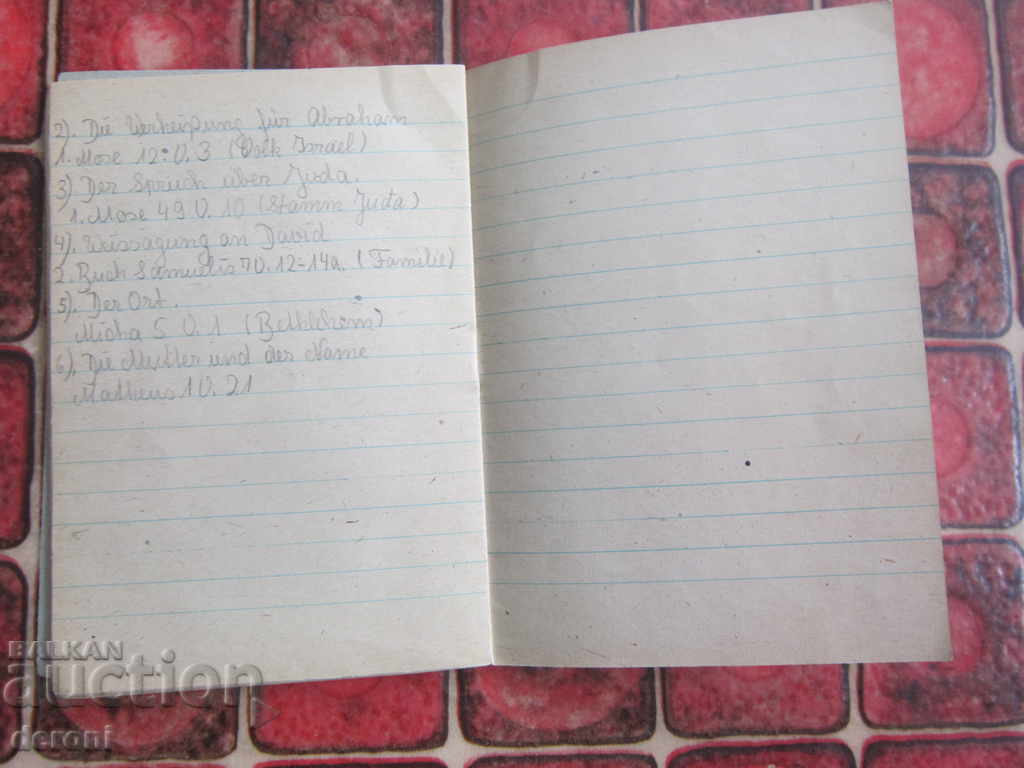 2). Die Verheißung für Abraham
1. Mose 12:V.3 (Volk Israel)
3) Der Spruch über Juda.
1. Mose 49 V. 10 (Stamm Juda)
4). Weissagung an David
2. Buch Samuelis 7 V. 12-14a. (Familie)
5). Der Ort.
Micha 5 V. 1 (Bethlehem)
6). Die Mutter und der Name
Matheus 1 V. 21
BALKAN
auction
deroni